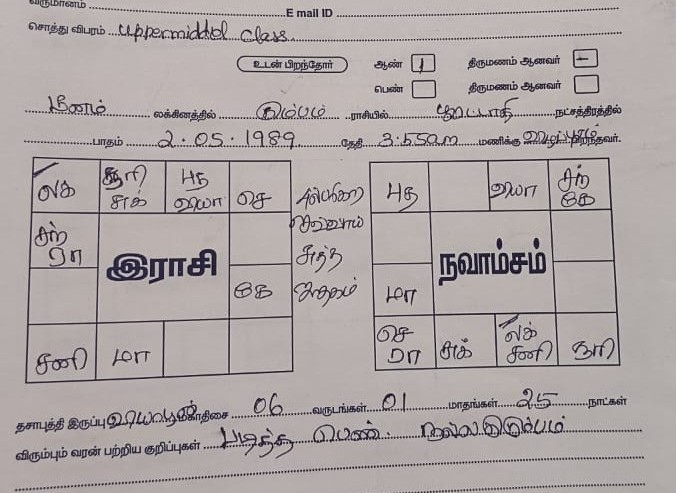 வருமானம் E mail ID
சொத்து விபரம் uppermiddel class
உடன் பிறந்தோர் ஆண் 1 திருமணம் ஆனவர் –
பெண் திருமணம் ஆனவர்
மீனம் லக்கினத்தில் கும்பம் ராசியில் பூரட்டாதி நட்சத்திரத்தில்
பாதம் 2.05.1989 தேதி 3.55am மணிக்கு பிறந்தவர்.
லக் சூரி சுக் புத வியா செ புத வியா சந் கே
சந் ரா இராசி சுத்த நவாம்சம்
கே ஜாதகம் மா
சனி மா செ ரா சுக் லக் சனி சூரி
தசாபுத்தி இருப்பு வியாழன் மகாதிசை 06 வருடங்கள் 01 மாதங்கள் 25 நாட்கள்
விரும்பும் வரன் பற்றிய குறிப்புகள் படித்த பெண் நல்ல குடும்பம்